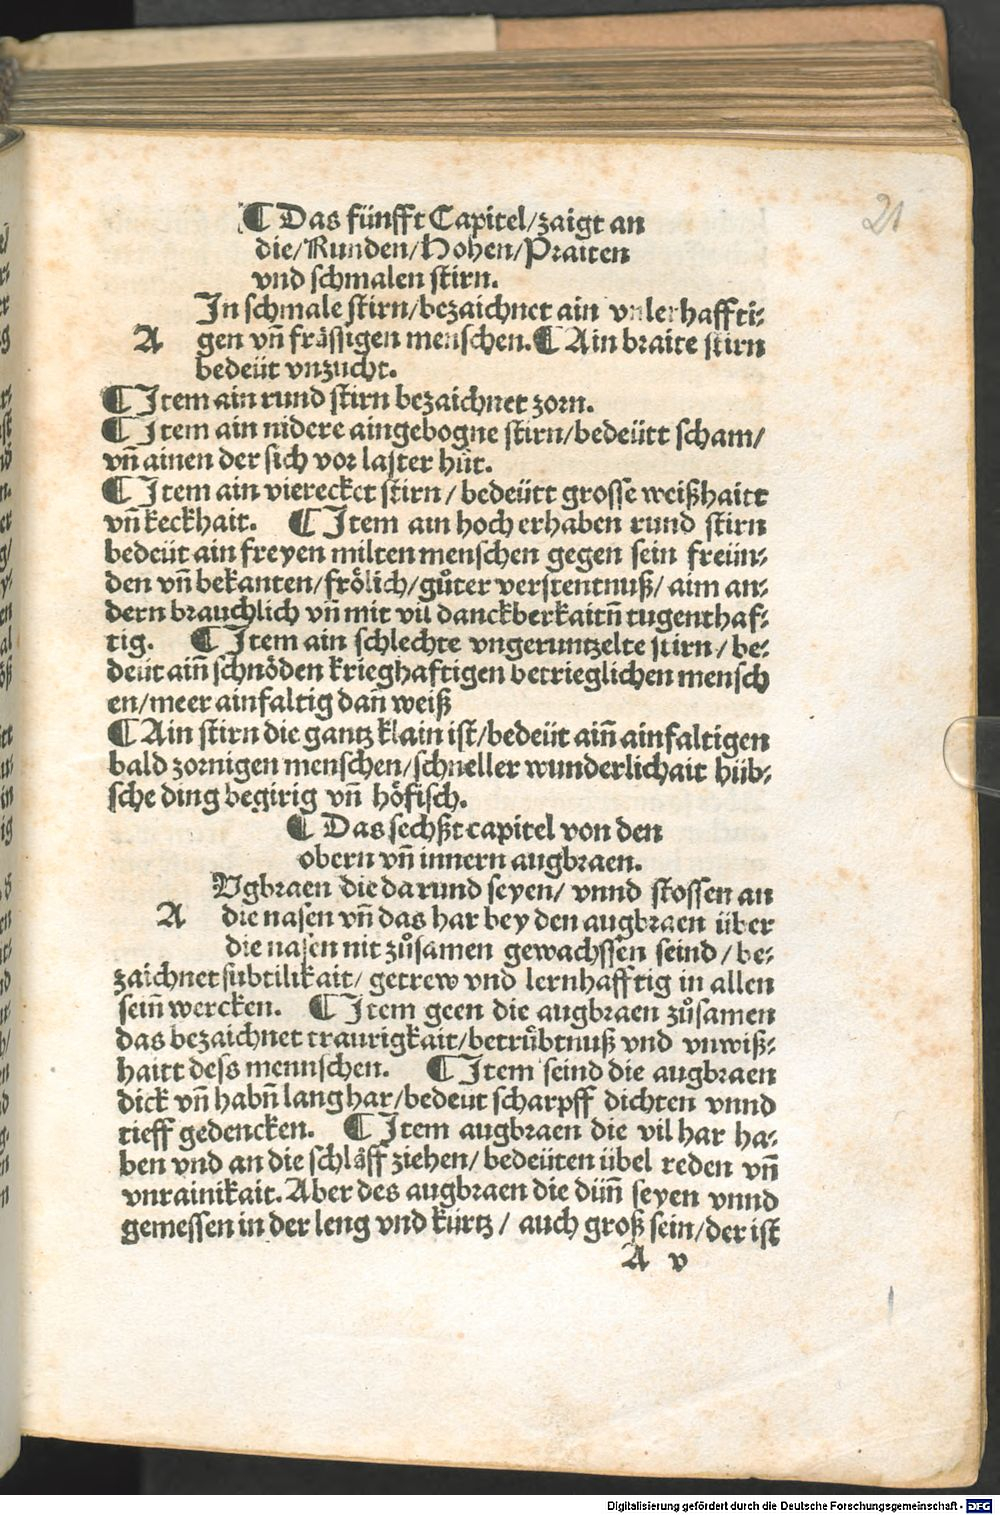 21
¶ Das fünfft Capitel/zaigt an
die/Runden/Hohen/Praiten
vnd schmalen stirn.
In schmale stirn/bezaichnet ain vnlerhaffti⸗
A gen vn̄ frässigen menschen. ¶ Ain braite stirn
bedeüt vnzucht.
¶ Item ain rund stirn bezaichnet zorn.
¶ Item ain nidere aingebogne stirn/bedeütt scham/
vn̄ ainen der sich vor laster hüt.
¶ Item ain vierecket stirn/bedeütt grosse weißhaitt
vn̄ keckhait. ¶ Item ain hoch erhaben rund stirn
bedeüt ain freyen milten menschen gegen sein freün⸗
den vn̄ bekanten/frölich/gůter verstentnuß/aim an⸗
dern brauchlich vn̄ mit vil danckberkaitn̄ tugenthaf⸗
tig. ¶ Item ain schlechte vngeruntzelte stirn/be⸗
deüt ain̄ schnöden krieghaftigen betrieglichen mensch
en/meer ainfaltig dan̄ weiß
¶ Ain stirn die gantz klain ist/bedeüt ain̄ ainfaltigen
bald zornigen menschen/schneller wunderlichait hüb⸗
sche ding begirig vn̄ höfisch.
¶ Das sechßt capitel von den
obern vn̄ innern augbraen.
Vgbraen die da rund seyen/vnnd stossen an
A die nasen vn̄ das har bey den augbraen über
die nasen nit zůsamen gewachssen seind/be⸗
zaichnet subtilikait/getrew vnd lernhafftig in allen
sein̄ wercken. ¶ Item geen die augbraen zůsamen
das bezaichnet traurigkait/betrübtnuß vnd vnwiß⸗
haitt dess mennschen. ¶ Item seind die augbraen
dick vn̄ habn̄ lang har/bedeüt scharpff dichten vnnd
tieff gedencken. ¶ Item augbraen die vil har ha⸗
ben vnd an die schläff ziehen/bedeüten übel reden vn̄
vnrainikait. Aber des augbraen die dün̄ seyen vnnd
gemessen in der leng vnd kürtz/auch groß sein/der ist
A v
Digitalisierung gefördert durch die Deutsche Forschungsgemeinschaft - DFG